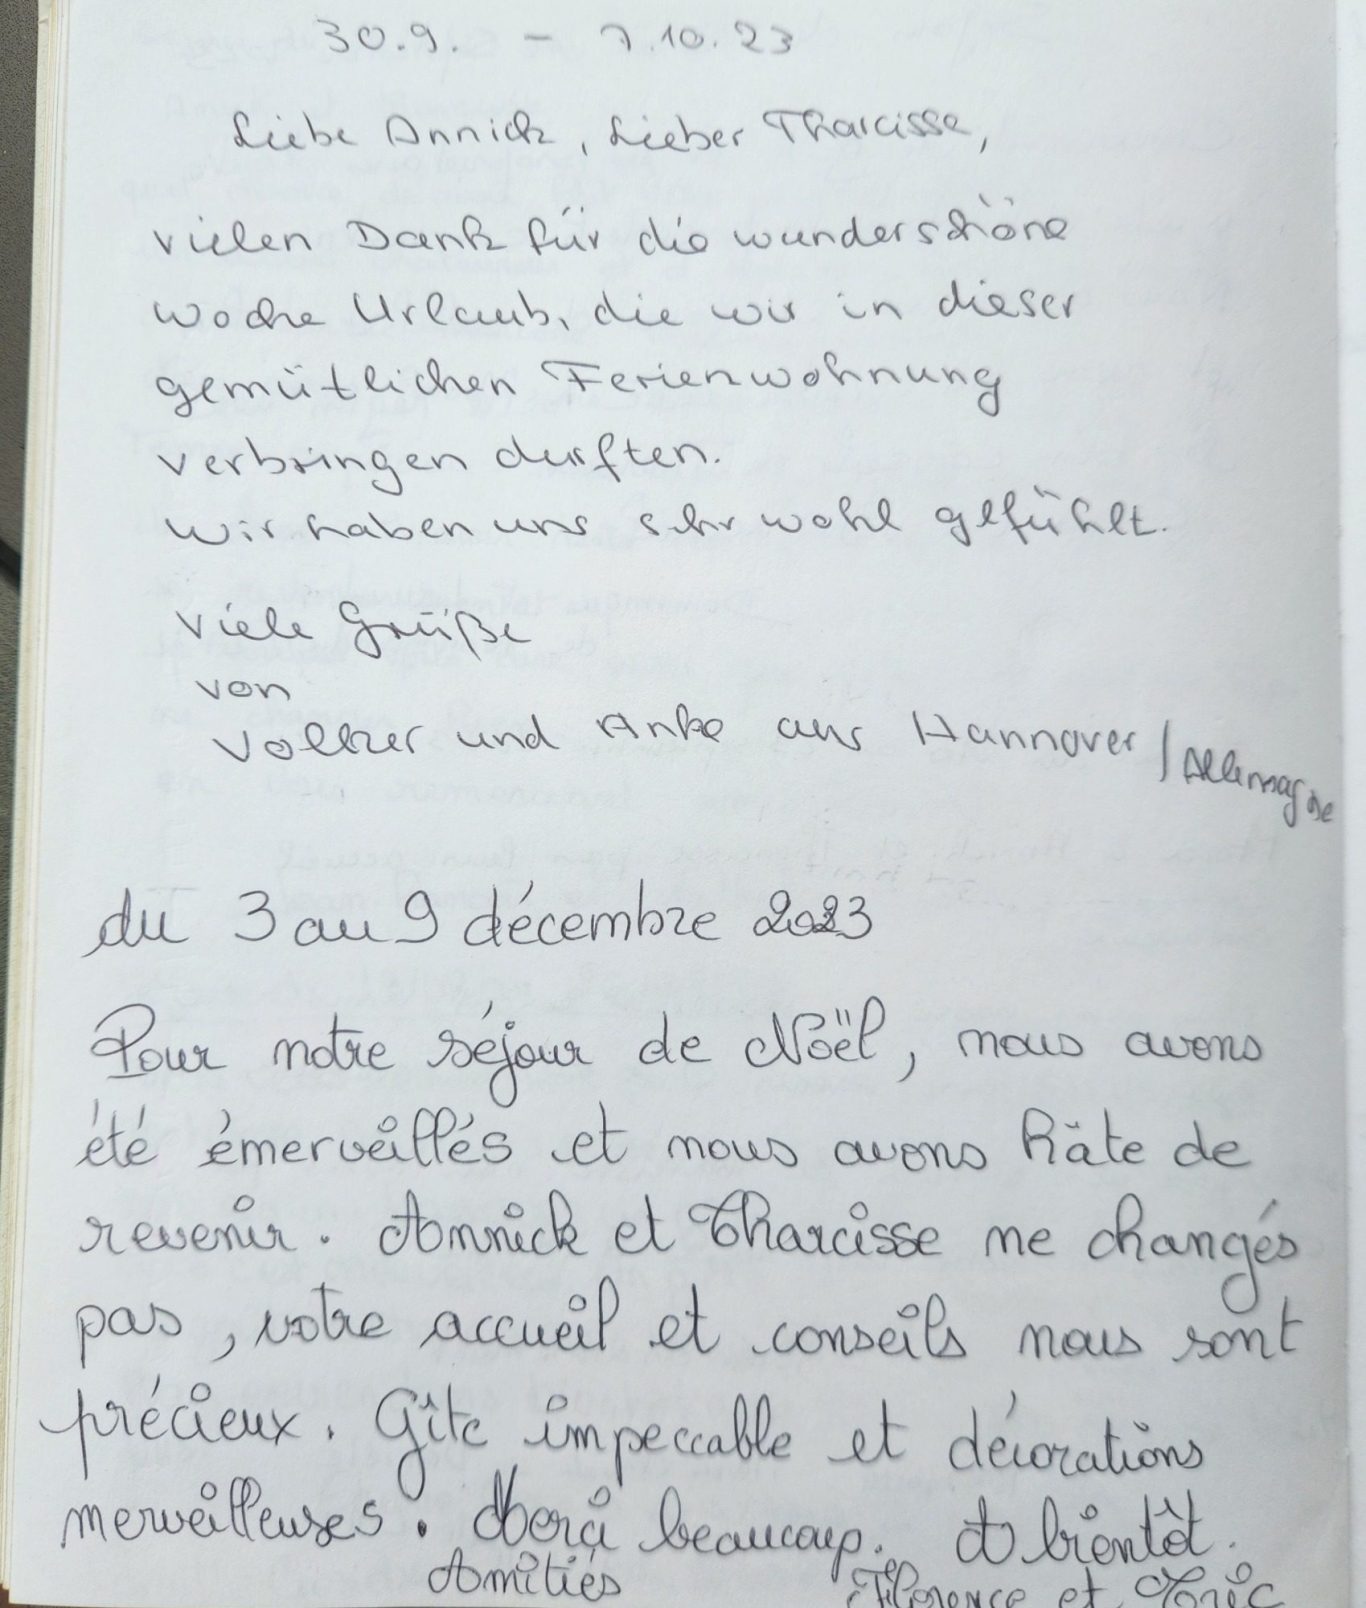 30.9. - 7.10.23
Liebe Annick, Lieber Tharcisse,
vielen Dank für die wunderschöne
Woche Urlaub, die wir in dieser
gemütlichen Ferienwohnung
verbringen durften.
Wir haben uns sehr wohl gefühlt.
Viele Grüße
von
Volker und Anke aus Hannover / Allemagne
du 3 au 9 décembre 2023
Pour notre séjour de Noël, nous avons
été émerveillés et nous avons hâte de
revenir. Annick et Tharcisse ne changés
pas, votre accueil et conseils nous sont
précieux. Gîte impeccable et décorations
merveilleuses. Merci beaucoup. A bientôt.
Amitiés Florence et